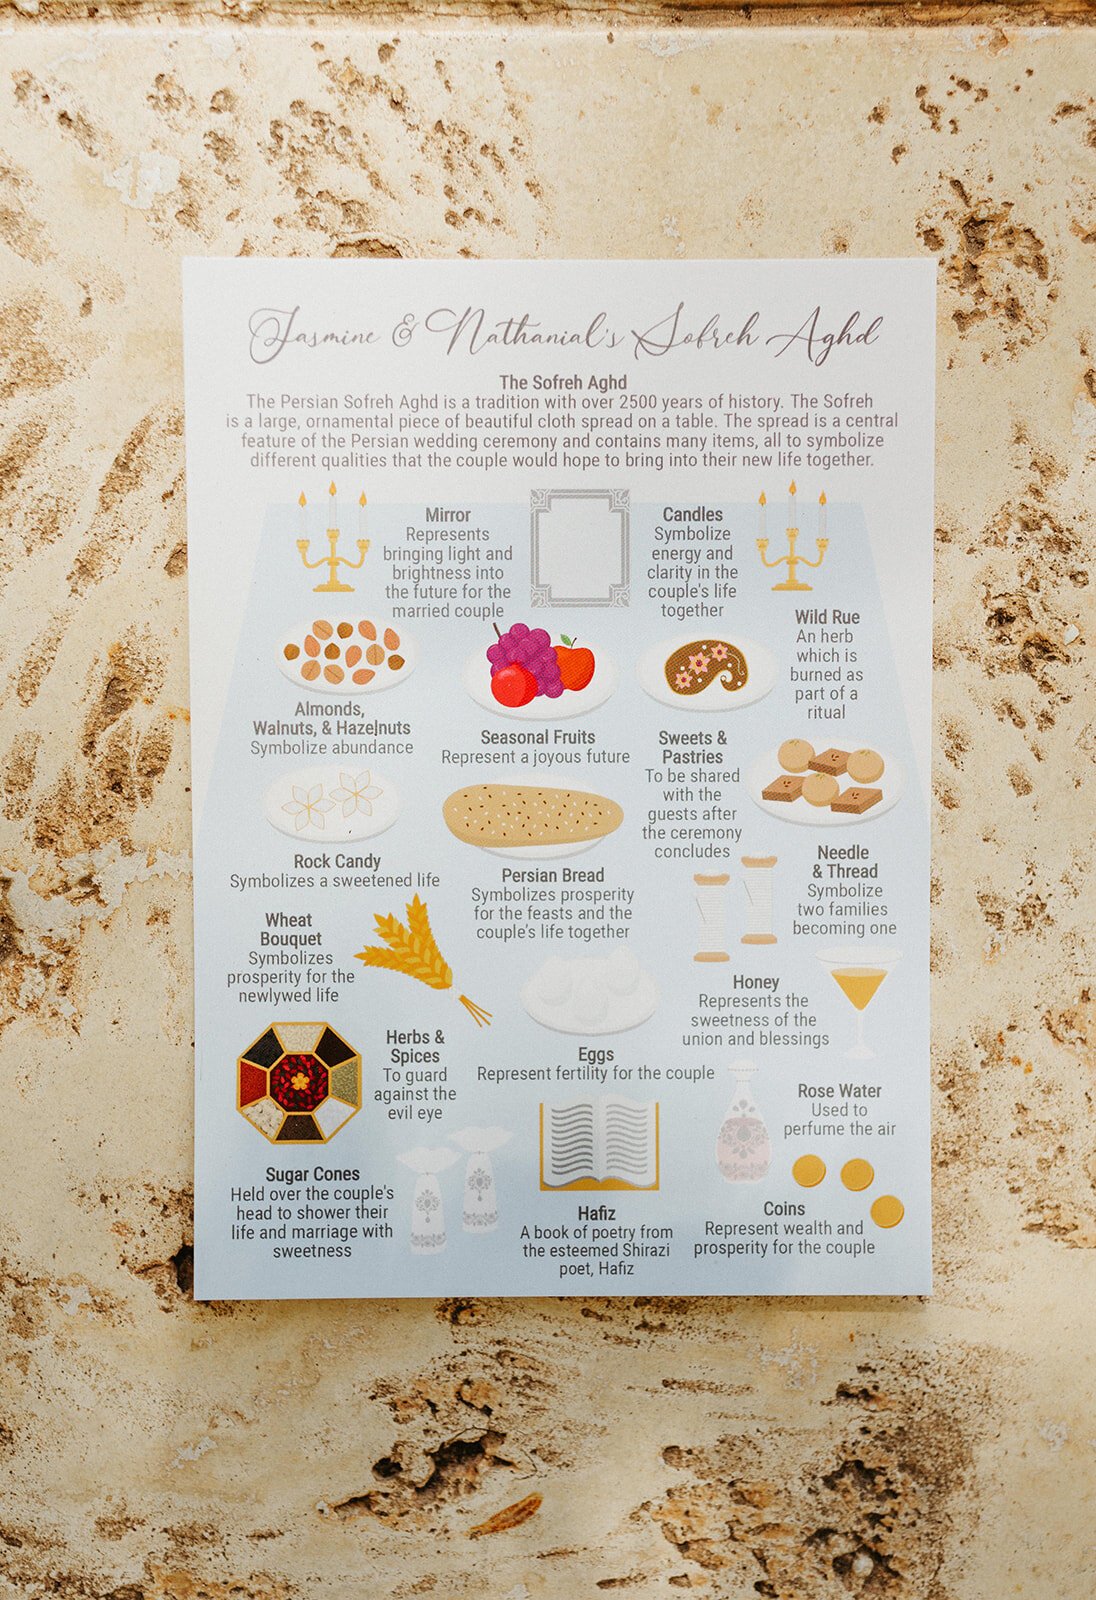 Jasmine & Nathanial's Sofreh Aghd
The Sofreh Aghd
The Persian Sofreh Aghd is a tradition with over 2500 years of history. The Sofreh
is a large, ornamental piece of beautiful cloth spread on a table. The spread is a central
feature of the Persian wedding ceremony and contains many items, all to symbolize
different qualities that the couple would hope to bring into their new life together.
Mirror
Represents
bringing light and
brightness into
the future for the
married couple
Candles
Symbolize
energy and
clarity in the
couple's life
together
Wild Rue
An herb
which is
burned as
part of a
ritual
Almonds,
Walnuts, & Hazelnuts
Symbolize abundance
Seasonal Fruits
Represent a joyous future
Sweets &
Pastries
To be shared
with the
guests after
the ceremony
concludes
Rock Candy
Symbolizes a sweetened life
Persian Bread
Symbolizes prosperity
for the feasts and the
couple's life together
Needle
& Thread
Symbolize
two families
becoming one
Wheat
Bouquet
Symbolizes
prosperity for the
newlywed life
Honey
Represents the
sweetness of the
union and blessings
Herbs &
Spices
To guard
against the
evil eye
Eggs
Represent fertility for the couple
Rose Water
Used to
perfume the air
Sugar Cones
Held over the couple's
head to shower their
life and marriage with
sweetness
Hafiz
A book of poetry from
the esteemed Shirazi
poet, Hafiz
Coins
Represent wealth and
prosperity for the couple